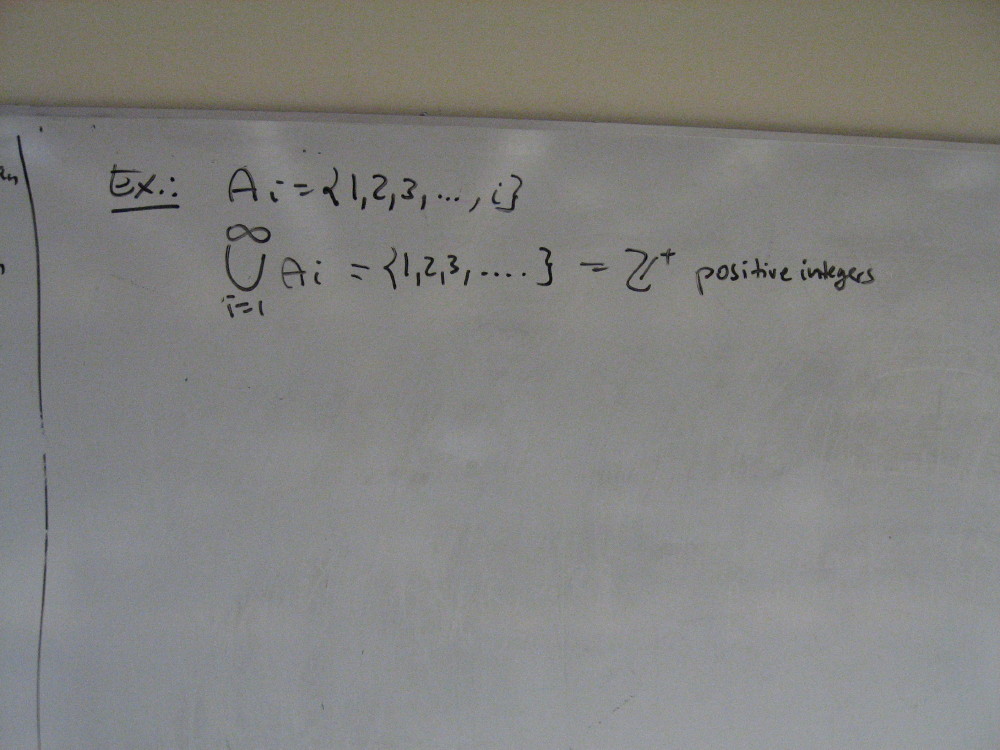 Ex.: Ai = {1,2,3,..., i}
∞
⋃ Ai = {1,2,3,....} = ℤ⁺ positive integers
i=1